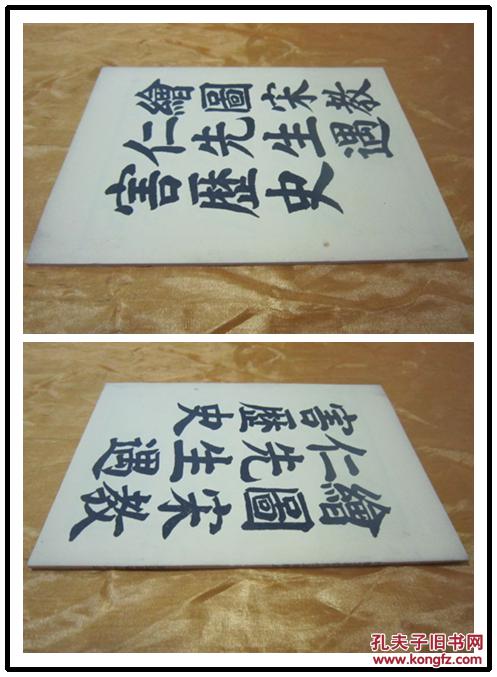 繪圖宋教
仁先生遇
害歷史
繪圖宋教
仁先生遇
害歷史
孔夫子旧书网
www.kongfz.com